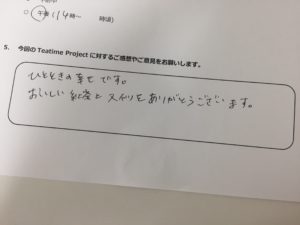 ○ 午後 (4時～ 時頃)
5. 今回の Teatime Project に対するご感想やご意見をお願いします。
ひとときの幸せです。
おいしい紅茶とスイーツをありがとうございます。